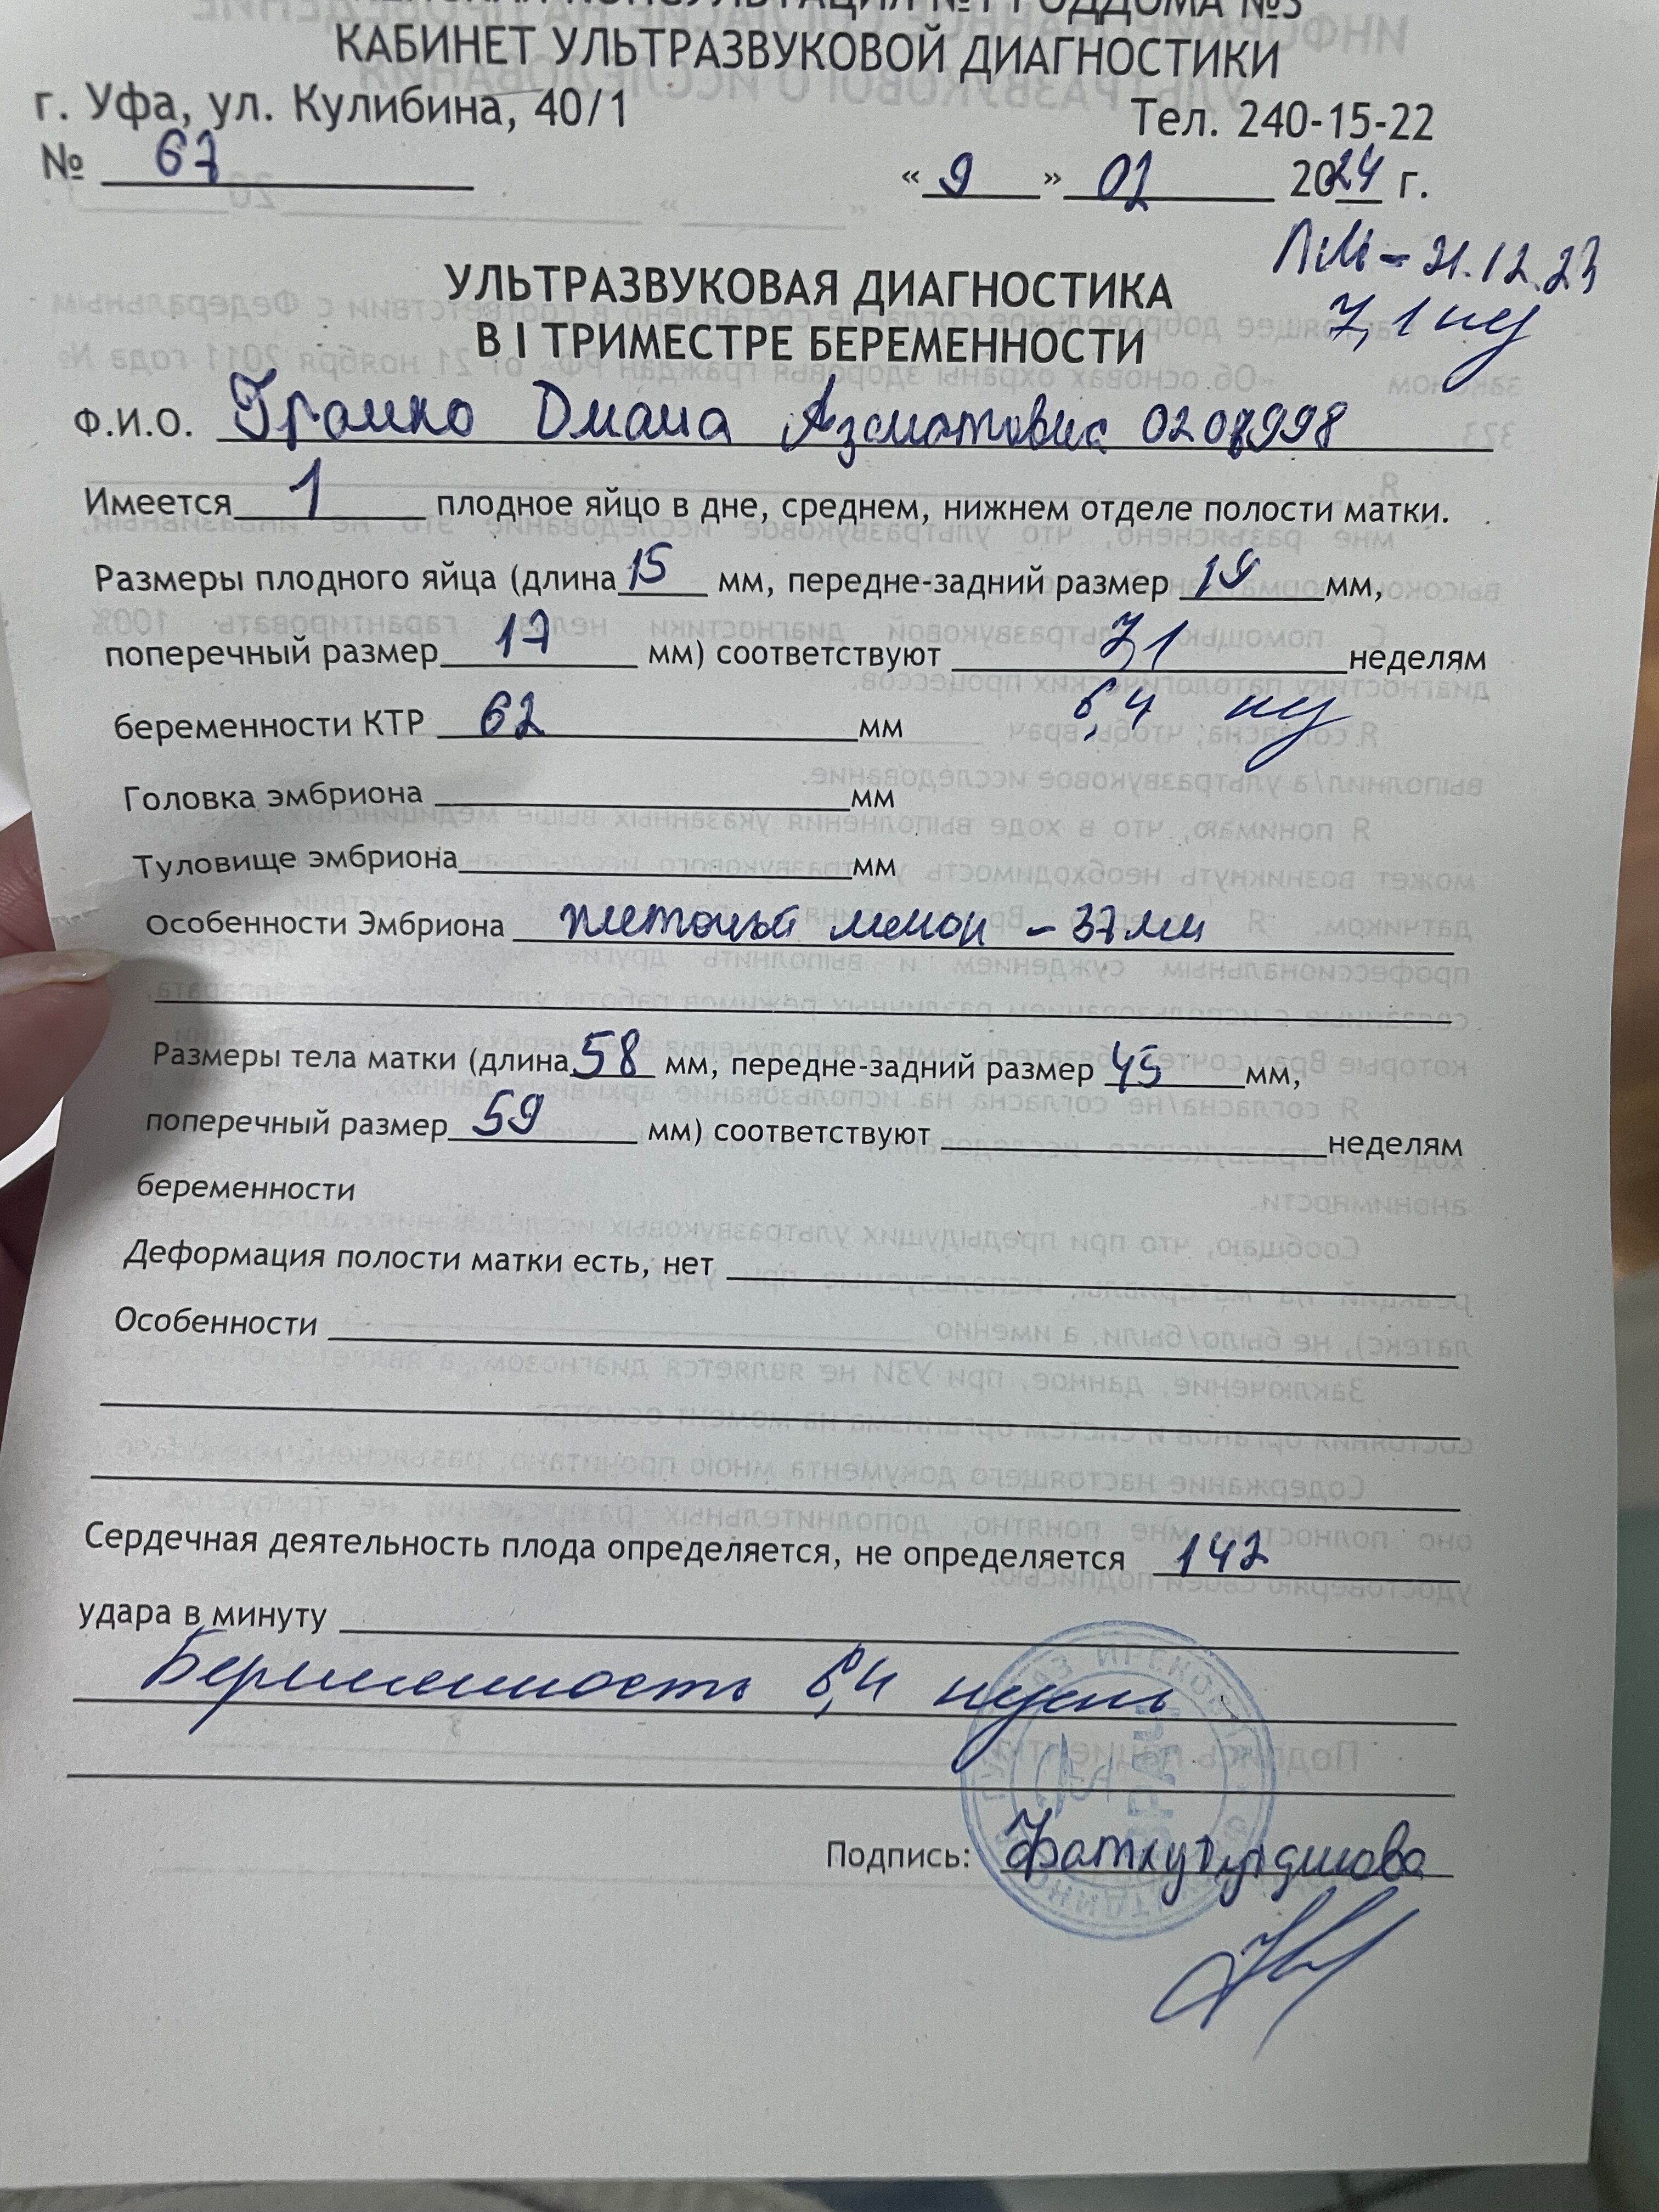 ЖЕНСКАЯ КОНСУЛЬТАЦИЯ №1 РОДДОМА №3
КАБИНЕТ УЛЬТРАЗВУКОВОЙ ДИАГНОСТИКИ
г. Уфа, ул. Кулибина, 40/1 Тел. 240-15-22
№ 67 « 9 » 02 2024 г.
ПМ - 21.12.23
7,1 нед
УЛЬТРАЗВУКОВАЯ ДИАГНОСТИКА
В I ТРИМЕСТРЕ БЕРЕМЕННОСТИ
Ф.И.О. Диана Азаматовна
Имеется 1 плодное яйцо в дне, среднем, нижнем отделе полости матки.
Размеры плодного яйца (длина 15 мм, передне-задний размер 19 мм,
поперечный размер 17 мм) соответствуют 7,1 неделям
беременности КТР 62 мм 6,4 нед
Головка эмбриона мм
Туловище эмбриона мм
Особенности Эмбриона желточный мешок - 37 мм
Размеры тела матки (длина 58 мм, передне-задний размер 45 мм,
поперечный размер 59 мм) соответствуют неделям
беременности
Деформация полости матки есть, нет
Особенности
Сердечная деятельность плода определяется, не определяется 142
удара в минуту
Беременность 6,4 недель
Подпись: